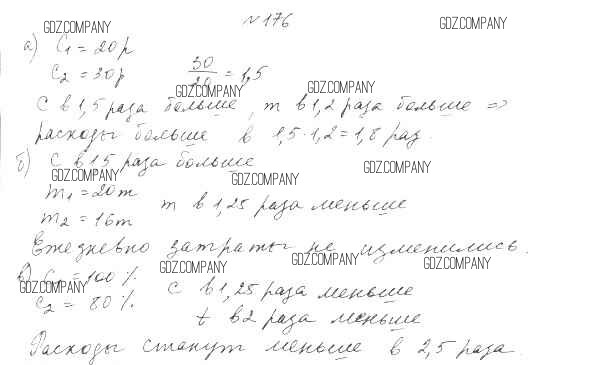 N 176
GDZ.COMPANY GDZ.COMPANY
а) C₁ = 20р
C₂ = 30р 30/20 = 1,5
GDZ.COMPANY GDZ.COMPANY
C в 1,5 раза больше, m в 1,2 раза больше =>
расходы больше в 1,5 · 1,2 = 1,8 раз.
б) C в 1,5 раза больше
GDZ.COMPANY GDZ.COMPANY GDZ.COMPANY
m₁ = 20т m в 1,25 раза меньше
m₂ = 16т
Ежедневно затраты не изменились.
GDZ.COMPANY GDZ.COMPANY GDZ.COMPANY
в) C₁ = 100 % C в 1,25 раза меньше
GDZ.COMPANY
C₂ = 80 % t в 2 раза меньше
Расходы станут меньше в 2,5 раза.